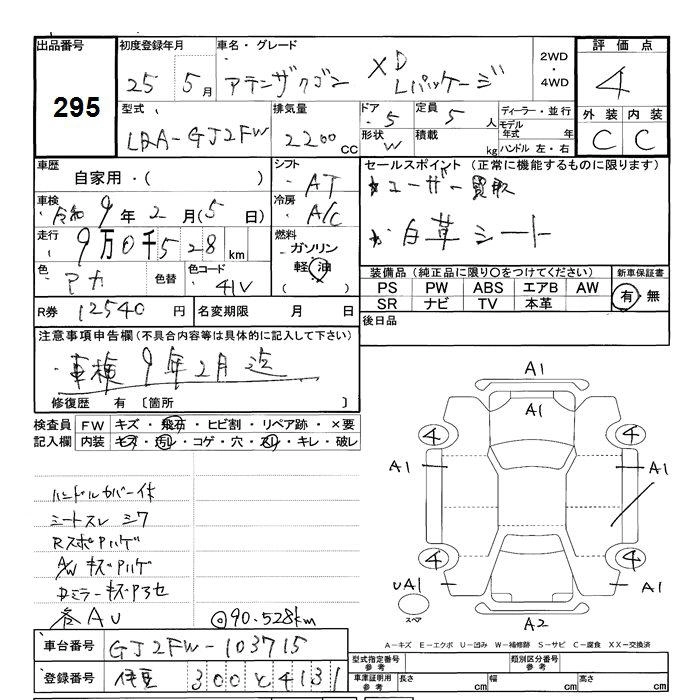 出品番号
295
初度登録年月
25 5月
車名・グレード
アテンザワゴン XD Lパッケージ
2WD
・
4WD
評価点
4
外装 内装
C C
型式
LDA-GJ2FW
排気量
2200 CC
ドア
5
形状
W
定員
5人
積載
kg
ディーラー・並行
モデル年式 年
ハンドル 左・右
車歴
自家用・( )
シフト
AT
車検
令和9年2月(5日)
冷房
A/C
走行
9万0千528km
燃料
ガソリン
軽油
( )
色
アカ
色替
色コード
41V
R券 12540円
名変期限 月 日
セールスポイント (正常に機能するものに限ります)
☆ユーザー買取
☆白革シート
装備品 (純正品に限り〇をつけてください)
PS PW ABS エアB AW
SR ナビ TV 本革
新車保証書
有・無
後日品
注意事項申告欄 (不具合内容等は具体的に記入して下さい)
・車検9年2月迄
修復歴 有 〔箇所 〕
検査員記入欄
FW キズ・飛石・ヒビ割・リペア跡・×要
内装 キズ・汚レ・コゲ・穴・スレ・キレ・破レ
ハンドルカバー付
シートスレ シワ
RスポPハゲ
A/WキズPハゲ
各AU
◎90.528km
A1
A1
4
4
A1
A1
4
4
UA1
A1
スペア
A2
A-キズ E-エクボ U-凹み W-補修跡 S-サビ C-腐食 XX-交換済
車台番号 GJ2FW-103715
登録番号 伊豆 300 と 4131
型式指定番号
参考
類別区分番号
参考
車庫証明用
参考
長さ cm
幅 cm
高さ cm